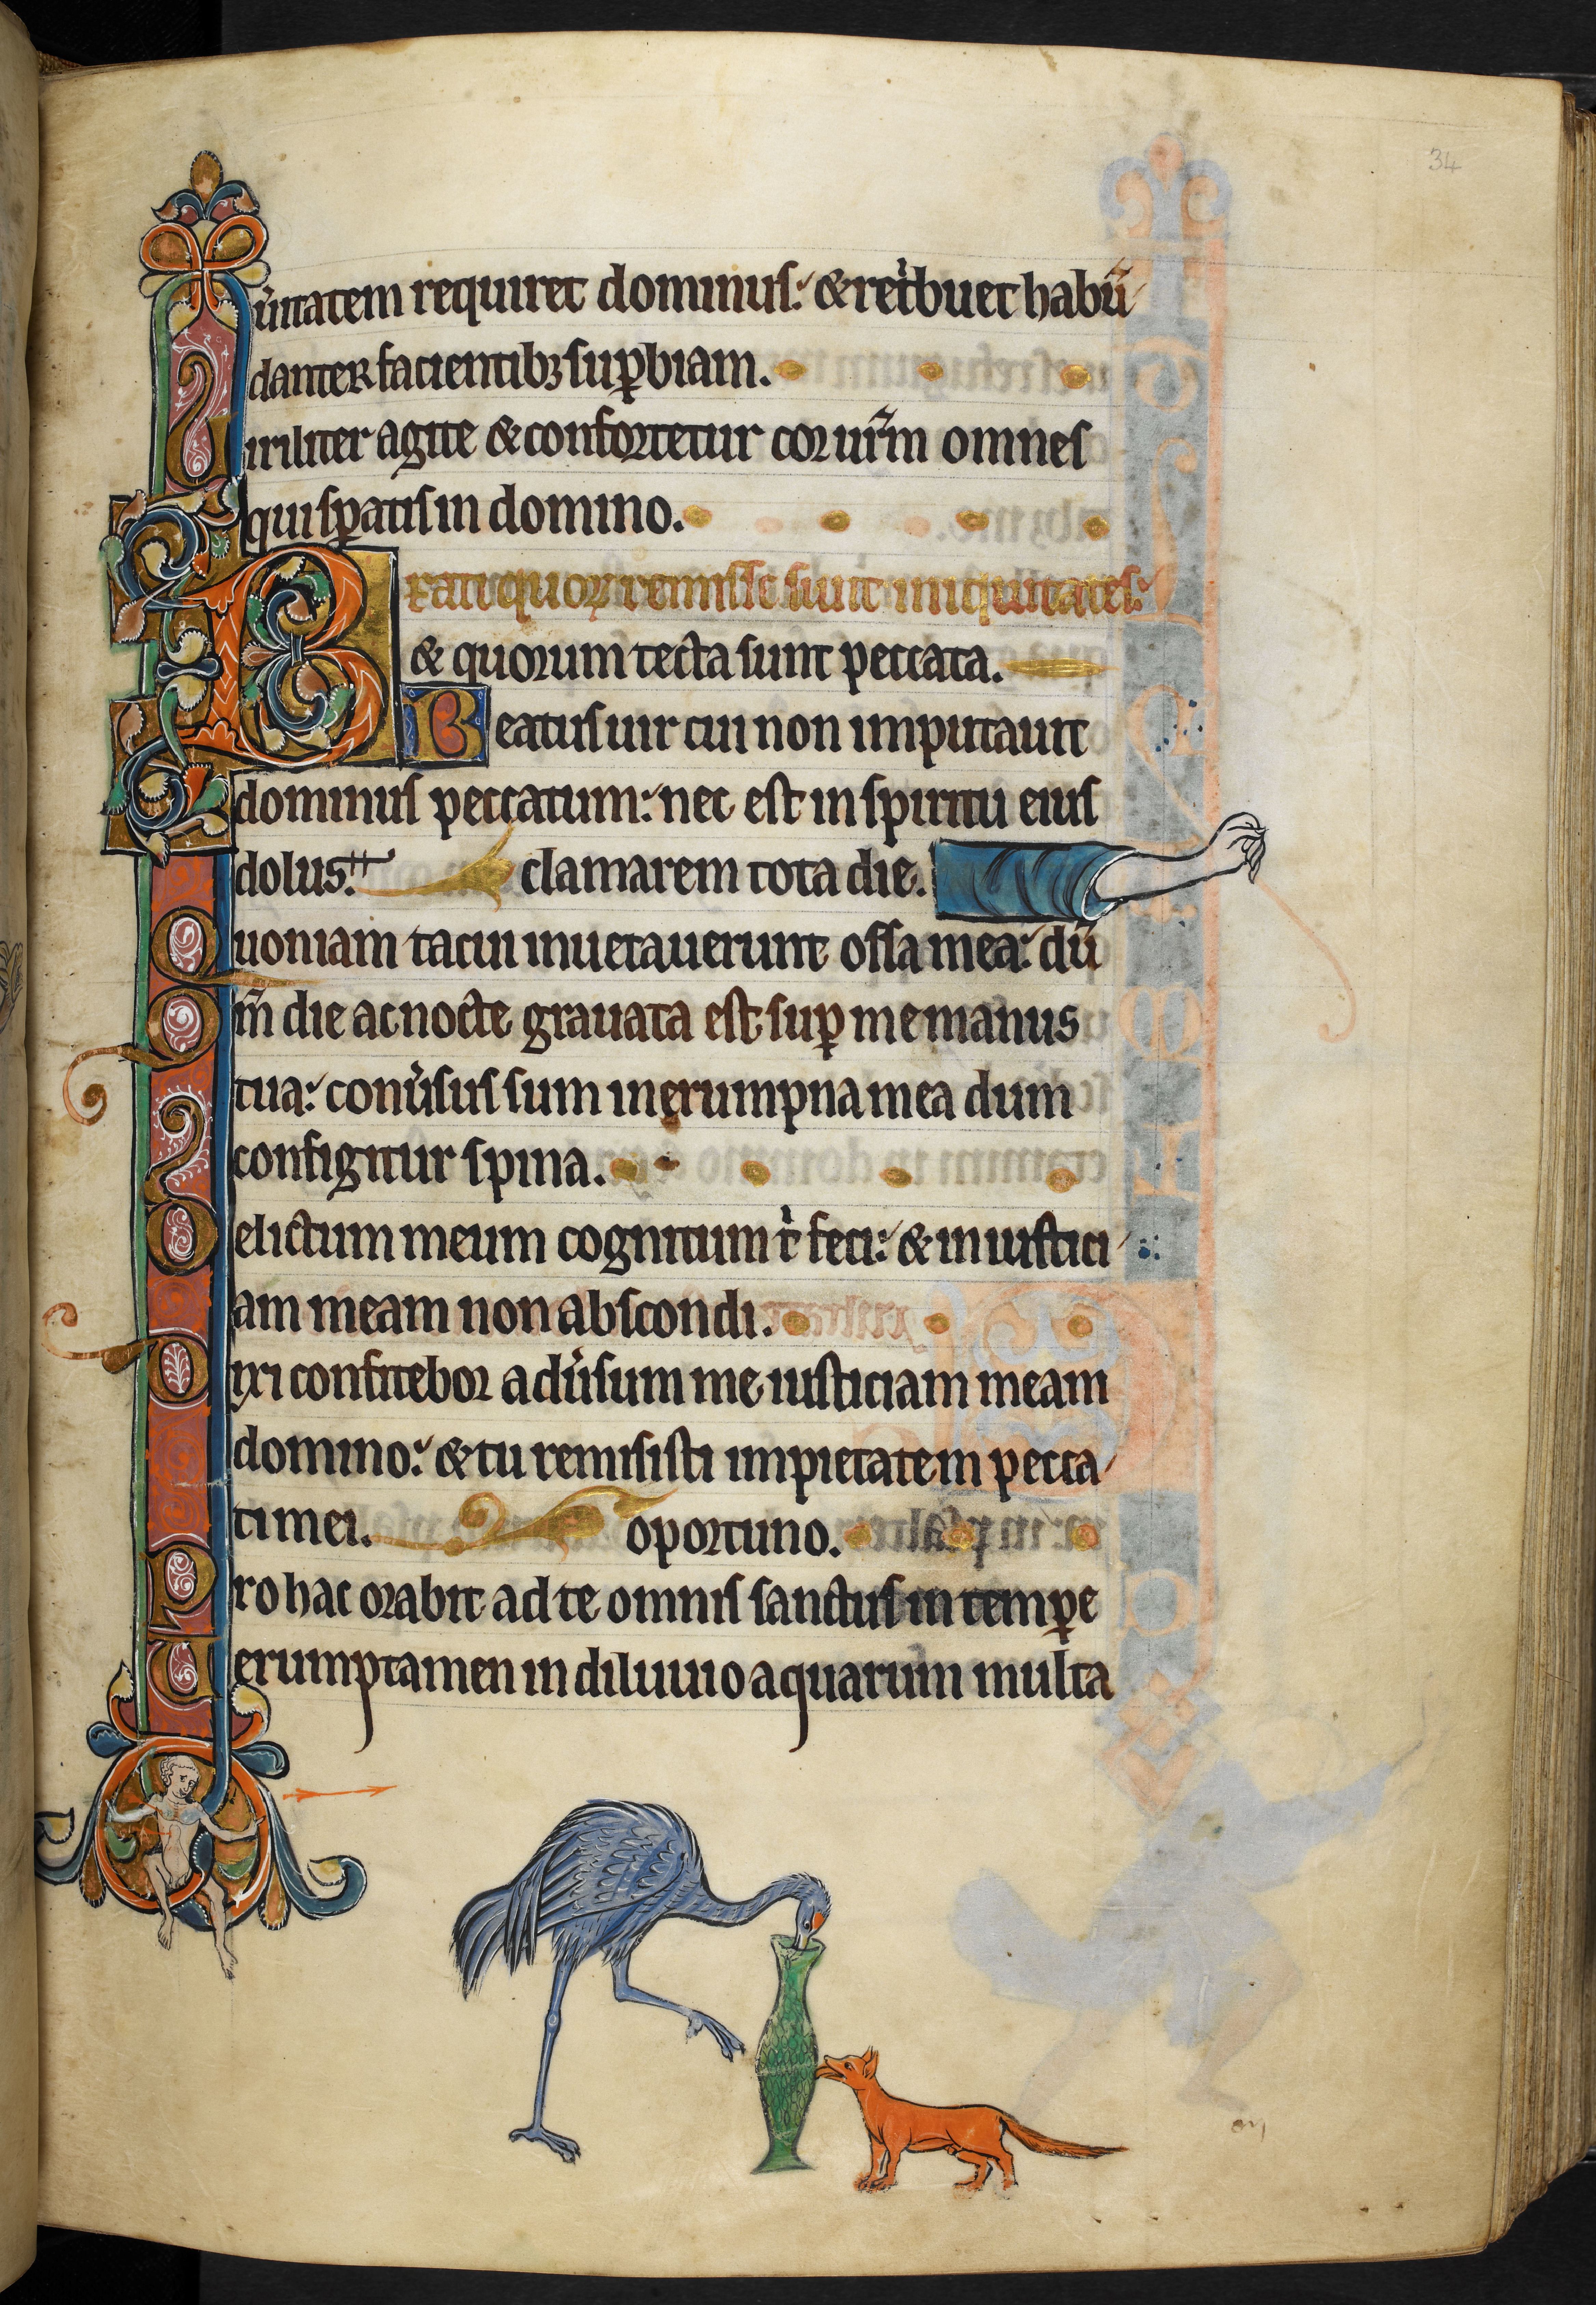 34
ūitatem requiret dominus: & ret̉buet habū
danter facientibꝫ suꝑbiam.
Uiriliter agite & confortetur cor ur̄m omnes
qui sꝑatis in domino.
Beati quoꝝ remisse sunt iniquitates:
& quorum tecta sunt peccata.
Beatus uir cui non imputauit
dominus peccatum: nec est in spiritu eius
dolus. clamarem tota die.
Quoniam tacui inuetauerunt ossa mea: dū
Qm̄ die ac nocte grauata est suꝑ me manus
tua: conủsus sum in erumpna mea dum
configitur spina.
Delictum meum cognitum t̉ feci: & iniustici
am meam non abscondi.
Dixi confitebor adủsum me iusticiam meam
domino: & tu remisisti impietatem pecca
ti mei. oportuno.
Pro hac orabit ad te omnis sanctus in temꝑe
Uerumptamen in diluuio aquarum multa